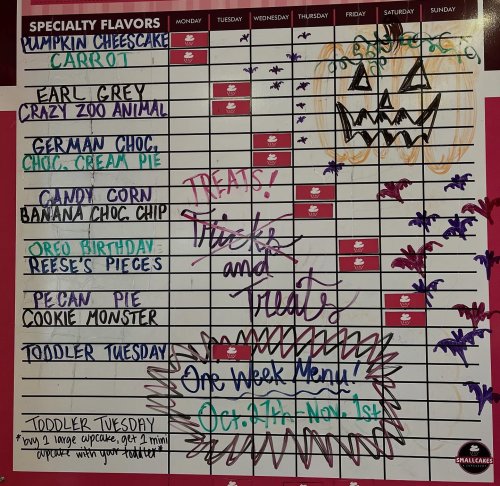 SPECIALTY FLAVORS MONDAY TUESDAY WEDNESDAY THURSDAY FRIDAY SATURDAY SUNDAY
PUMPKIN CHEESCAKE
CARROT
EARL GREY
CRAZY ZOO ANIMAL
GERMAN CHOC,
CHOC, CREAM PIE
TREATS!
CANDY CORN
BANANA CHOC, CHIP
Tricks
OREO BIRTHDAY
REESE'S PIECES
and
Treats
PECAN PIE
COOKIE MONSTER
TODDLER TUESDAY
One Week Menu!
Oct. 27th-Nov. 1st
TODDLER TUESDAY
*buy 2 large cupcake, get 1 mini
cupcake with your toddler*
SMALLCAKES